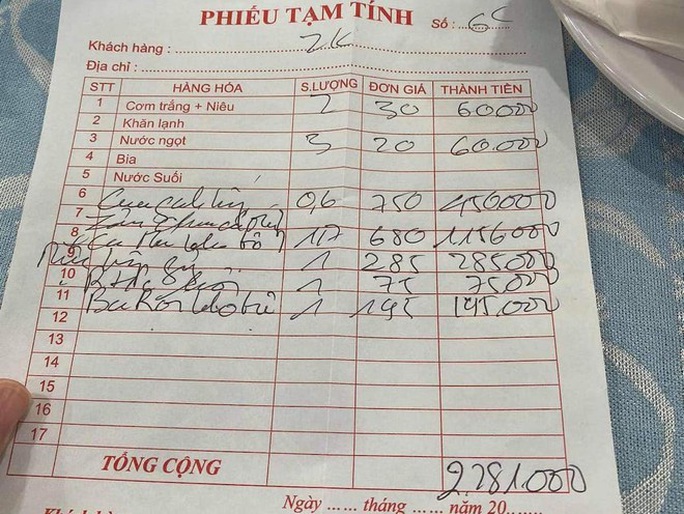 PHIẾU TẠM TÍNH Số : 6C
Khách hàng : 2K
Địa chỉ :
STT HÀNG HÓA S.LƯỢNG ĐƠN GIÁ THÀNH TIỀN
1 Cơm trắng + Niêu 2 30 60000
2 Khăn lạnh
3 Nước ngọt 3 20 60.000
4 Bia
5 Nước Suối
6 0,6 750 450000
7
8 1,7 680 1156000
9 1 285 285000
10 1 75 75000
11 1 195 195.000
12
13
14
15
16
17
TỔNG CỘNG 2.281.000
Ngày ...... tháng ...... năm 20.......